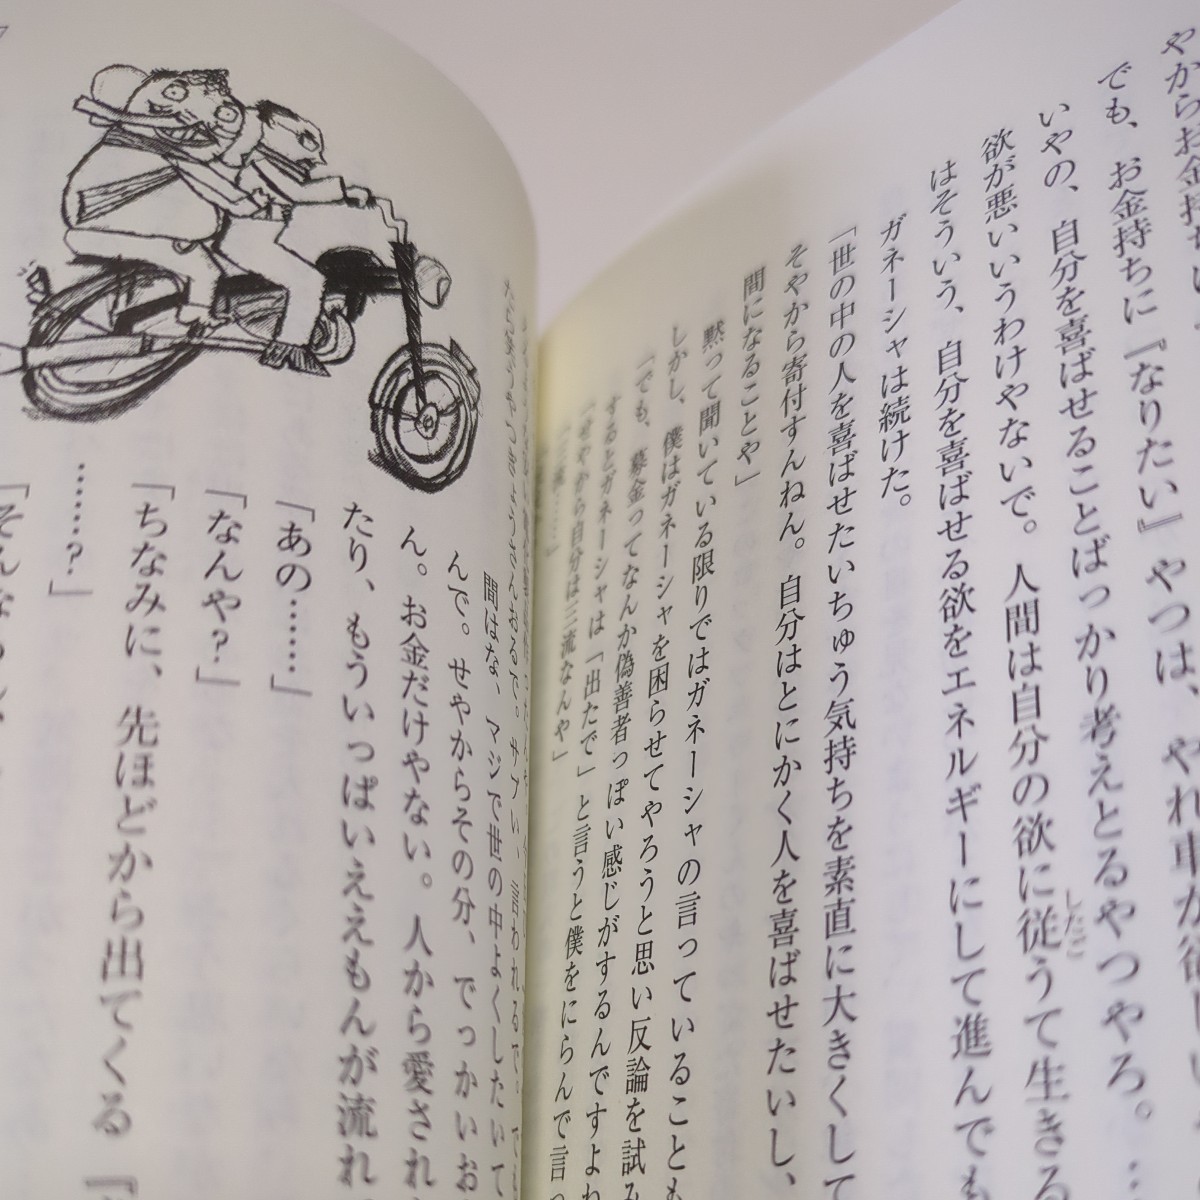 やからお金持ち
でも、お金持ちに『なりたい』やつは、やれ車が欲しい
いやの、自分を喜ばせることばっかり考えとるやつやろ。…
欲が悪いいうわけやないで。人間は自分の欲に従うて生きる
したご
はそういう、自分を喜ばせる欲をエネルギーにして進んでも
ガネーシャは続けた。
「世の中の人を喜ばせたいちゅう気持ちを素直に大きくして
そやから寄付すんねん。自分はとにかく人を喜ばせたいし、
間になることや」
黙って聞いている限りではガネーシャの言っていることも
しかし、僕はガネーシャを困らせてやろうと思い反論を試み
「でも、募金ってなんか偽善者っぽい感じがするんですよね
するとガネーシャは「出たで」と言うと僕をにらんで言っ
「せやから自分は三流なんや」
「三流……」
7
たら笑うやつぎょうさんおるで。サブい、言われるで。でも
間はな、マジで世の中よくしたいて
んで。せやからその分、でっかいお
ん。お金だけやない。人から愛され
たり、もういっぱいええもんが流れ
「あの……」
「なんや?」
「ちなみに、先ほどから出てくる『
……?」
「そんな